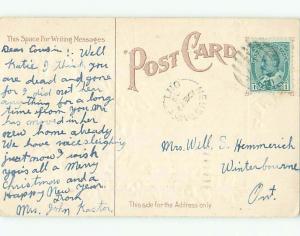 This Space For Writing Messages
POST CARD
Dear Cousin :. Well
Katie I think you
are dead and gone
for I did not hear
anything for a long
time from you
has moved in her
new home already
We have nace sleighing
just now I wish
you is all a Merry
Christmas and a
Happy New Year.
From
Mrs. John Kastor
Mrs. Will S. Hemmerich
Winterbourne
Ont.
This side for the Address only